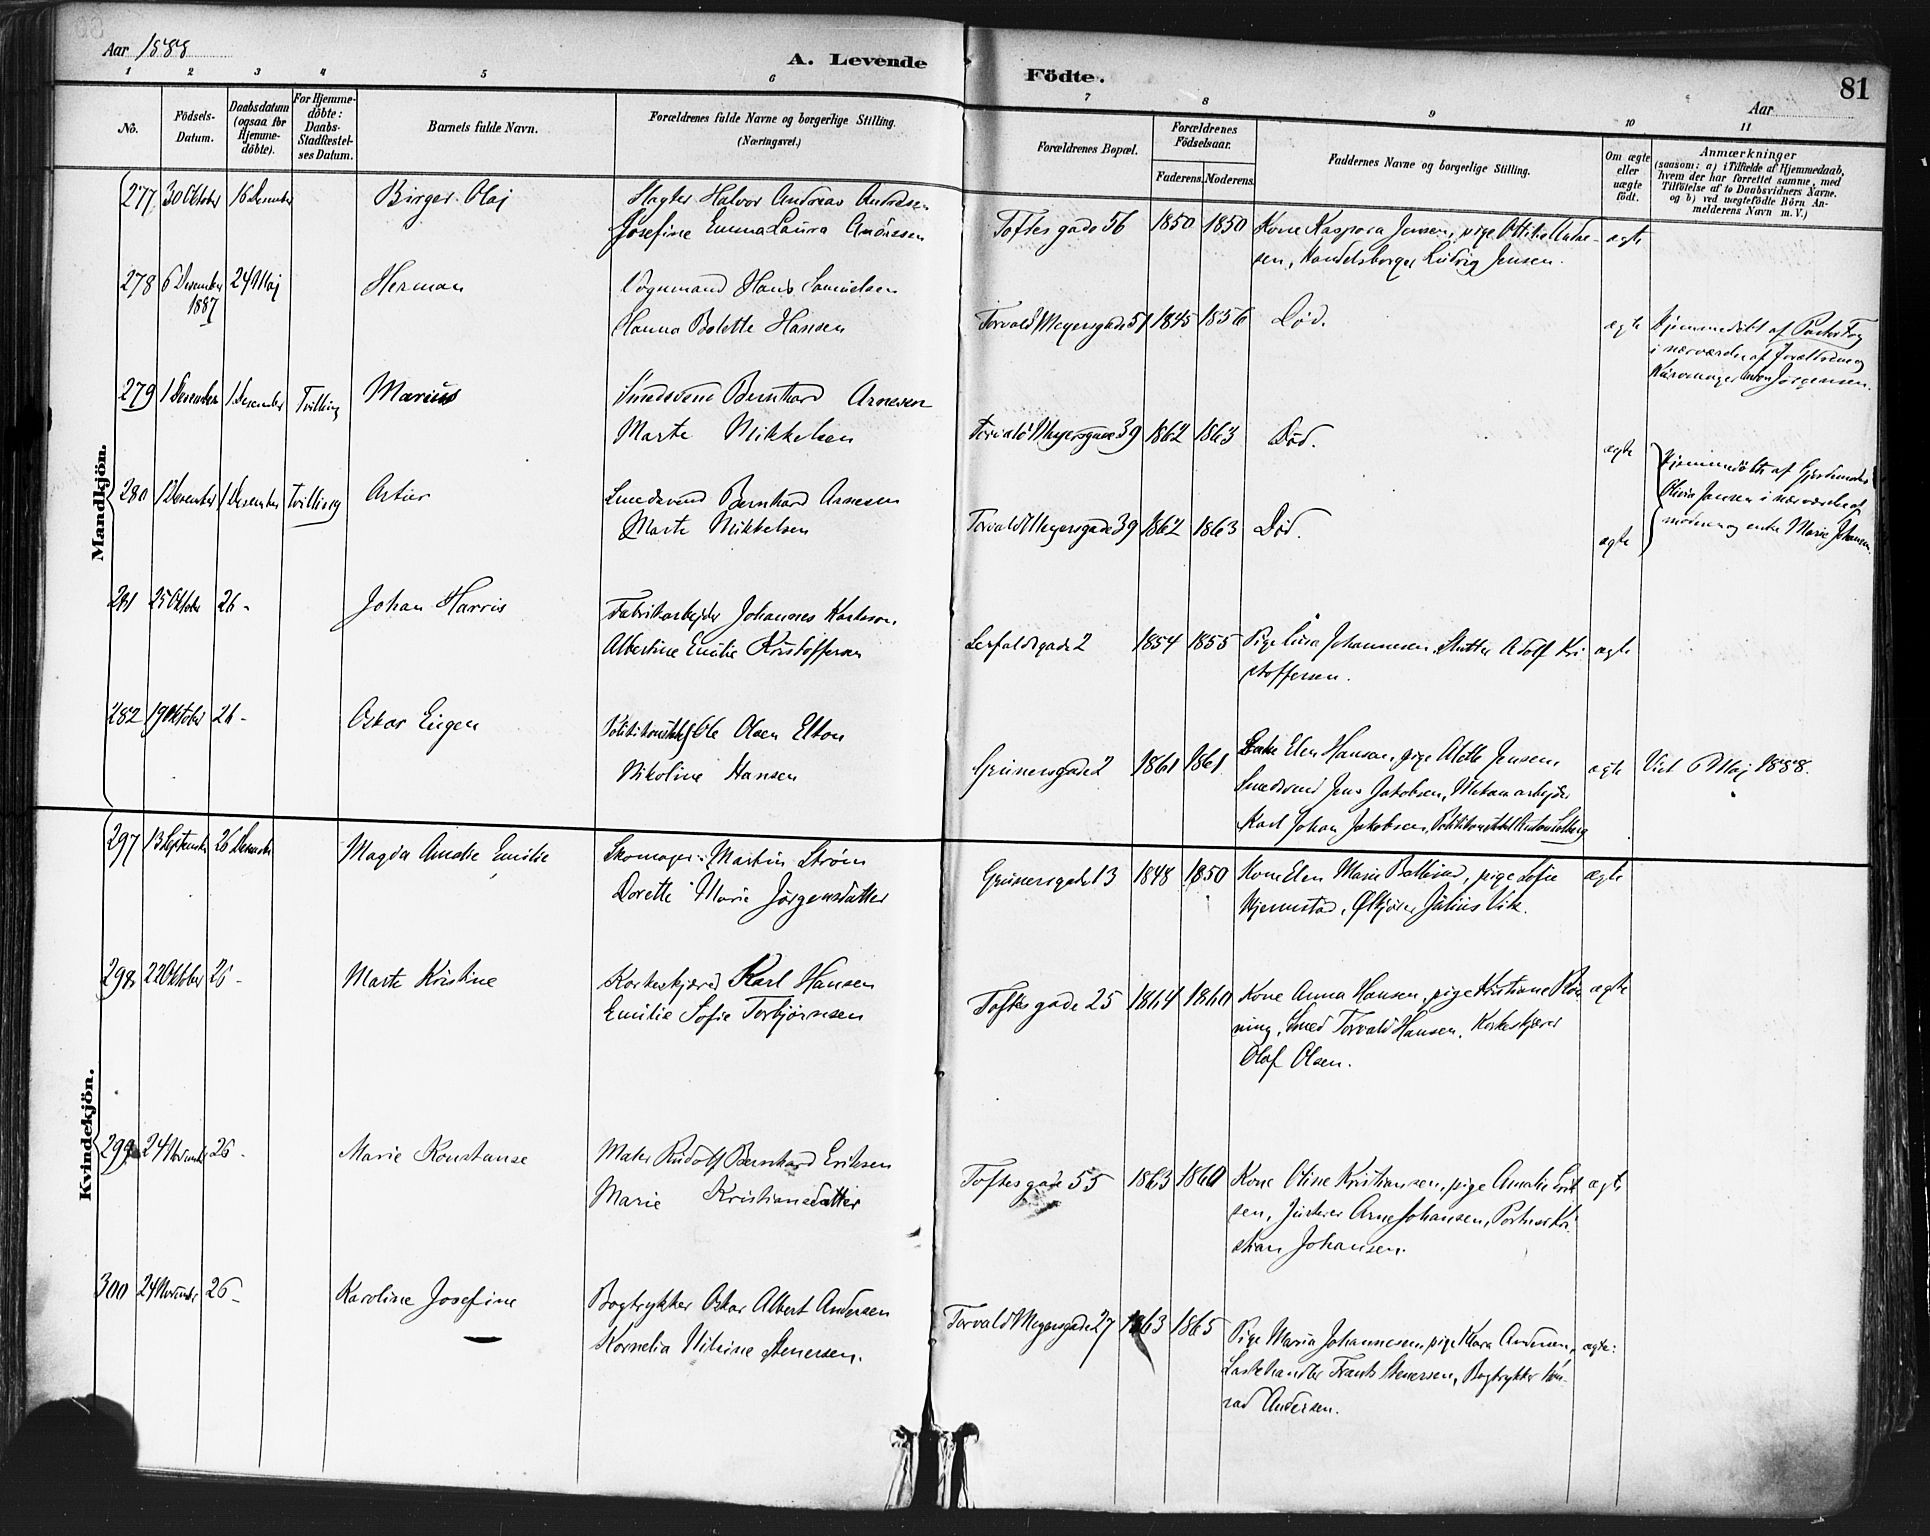 Aar 1888
A. Levende
Födte.
Aar
81
1 2 3 4 5 6 7 8 9 10 11
No.
Födsels-Datum.
Daabsdatum (ogsaa for Hjemme-döbte).
For Hjemme-döbte: Daabs-Stadfestel-ses Datum.
Barnets fulde Navn.
Forældrenes fulde Navne og borgerlige Stilling. (Næringsvei.)
Forældrenes Bopæl.
Forældrenes Födselsaar.
Faderens. Moderens.
Faddernes Navne og borgerlige Stilling.
Om ægte eller uægte födt.
Anmærkninger
(saasom: a) i Tilfælde af Hjemmedaab,
hvem der har forrettet samme, med
Tilföielse af to Daabsvidners Navne.
og b) ved uægtefödte Börn An-
melderens Navn m. V.)
Mandkjön.
277 30 Oktober 16 Desember Birger Olaf Slagter Halvor Andreas Andresen Toftes gade 56 1850 1850 Kone Kaspara Jensen, pige Ottilie Andre- ægte
Josefine Emma Laura Andresen
sen, Handelsborger Ludvig Jensen.
278 6 Desember 1887 24 Maj Herman Vognmand Hans Samuelsen
Hanna Bolette Hansen Torvald Meyersgade 51 1845 1856 Död. ægte Hjemmedöbt af Pastor
i nærværelse af Forældrene og
Jørgensen.
279 1 Desember 1 Desember Tvilling Marius Smedsvend Bernhard Arnesen
Marte Mikkelsen Torvald Meyersgade 39 1862 1863 Död. ægte
280 1 Desember 1 Desember Tvilling Artur Smedsvend Bernhard Arnesen
Marte Mikkelsen Torvald Meyersgade 39 1862 1863 Död. ægte
Hjemmedöbte af Gjordemoder
Olivia Jensen i nærværelse af
moderen og enke Marie Johansen.
281 25 Oktober 26 - Johan Harris Fabrikarbejder Johannes Karlsson
Albertine Emilie Kristoffersen Lerfaldsgade 2 1854 1855 Pige Lina Johannesen, Adolf Kri ægte
stoffersen.
282 19 Oktober 26 - Oskar Eugen Politikonstabel Ole Olsen Elton
Nikoline Hansen Grünersgade 2 1861 1861 Elen Hansen, pige Alette Jensen, ægte Viet Maj 1888.
Smedsvend Jens Jakobsen, Mekan. arbejder
Karl Johan Jakobsen, Politikonstabel Anton
Kvindekjön.
297 13 September 26 Desember Magda Amalie Emilie Skomager Martin Strøm
Dorette Marie Jørgensdatter Grünersgade 13 1848 1850 Kone Elen Marie, pige Sofie ægte
Hjemstad, Julius Vik.
298 22 Oktober 26 - Marte Kristine Korkeskjærer Karl Hansen
Emilie Sofie Torbjørnsen Toftes gade 25 1864 1860 Kone Anna Hansen, pige Kristiane ægte
ning, Smed Torvald Hansen, Korkeskjærer
Olaf Olsen.
299 24 November 26 - Marie Konstanse Maler Rudolf Bernhard Eriksen
Marie Kristiansdatter Toftes gade 55 1863 1860 Kone Oline Kristiansen, pige Amalie Erik ægte
sen, Arne Johansen, Portner Kri
stian Johansen.
300 24 November 26 - Karoline Josefine Bogtrykker Oskar Albert Andersen
Kornelia Nilsine Stenersen. Torvald Meyersgade 27 1863 1865 Pige Maria Johannesen, pige Klara Andersen, ægte
Frants Stenersen, Bogtrykker Kon-
rad Andersen.